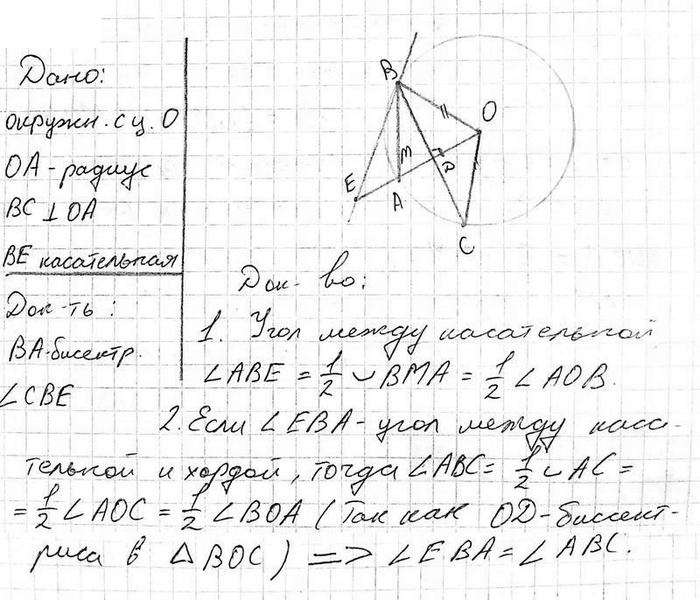 Дано:
окружн. с ц. О
ОА - радиус
ВС ⊥ ОА
ВЕ касательная
Док-ть:
ВА - бисектр.
∠CBE
B
O
M
D
E
A
C
Док-во:
1. Угол между касательной
∠ABE = 1/2 ◡BMA = 1/2 ∠AOB.
2. Если ∠EBA - угол между каса-
телькой и хордой, тогда ∠ABC = 1/2 ◡AC =
= 1/2 ∠AOC = 1/2 ∠BOA (Так как OD - биссект-
риса в △BOC) => ∠EBA = ∠ABC.